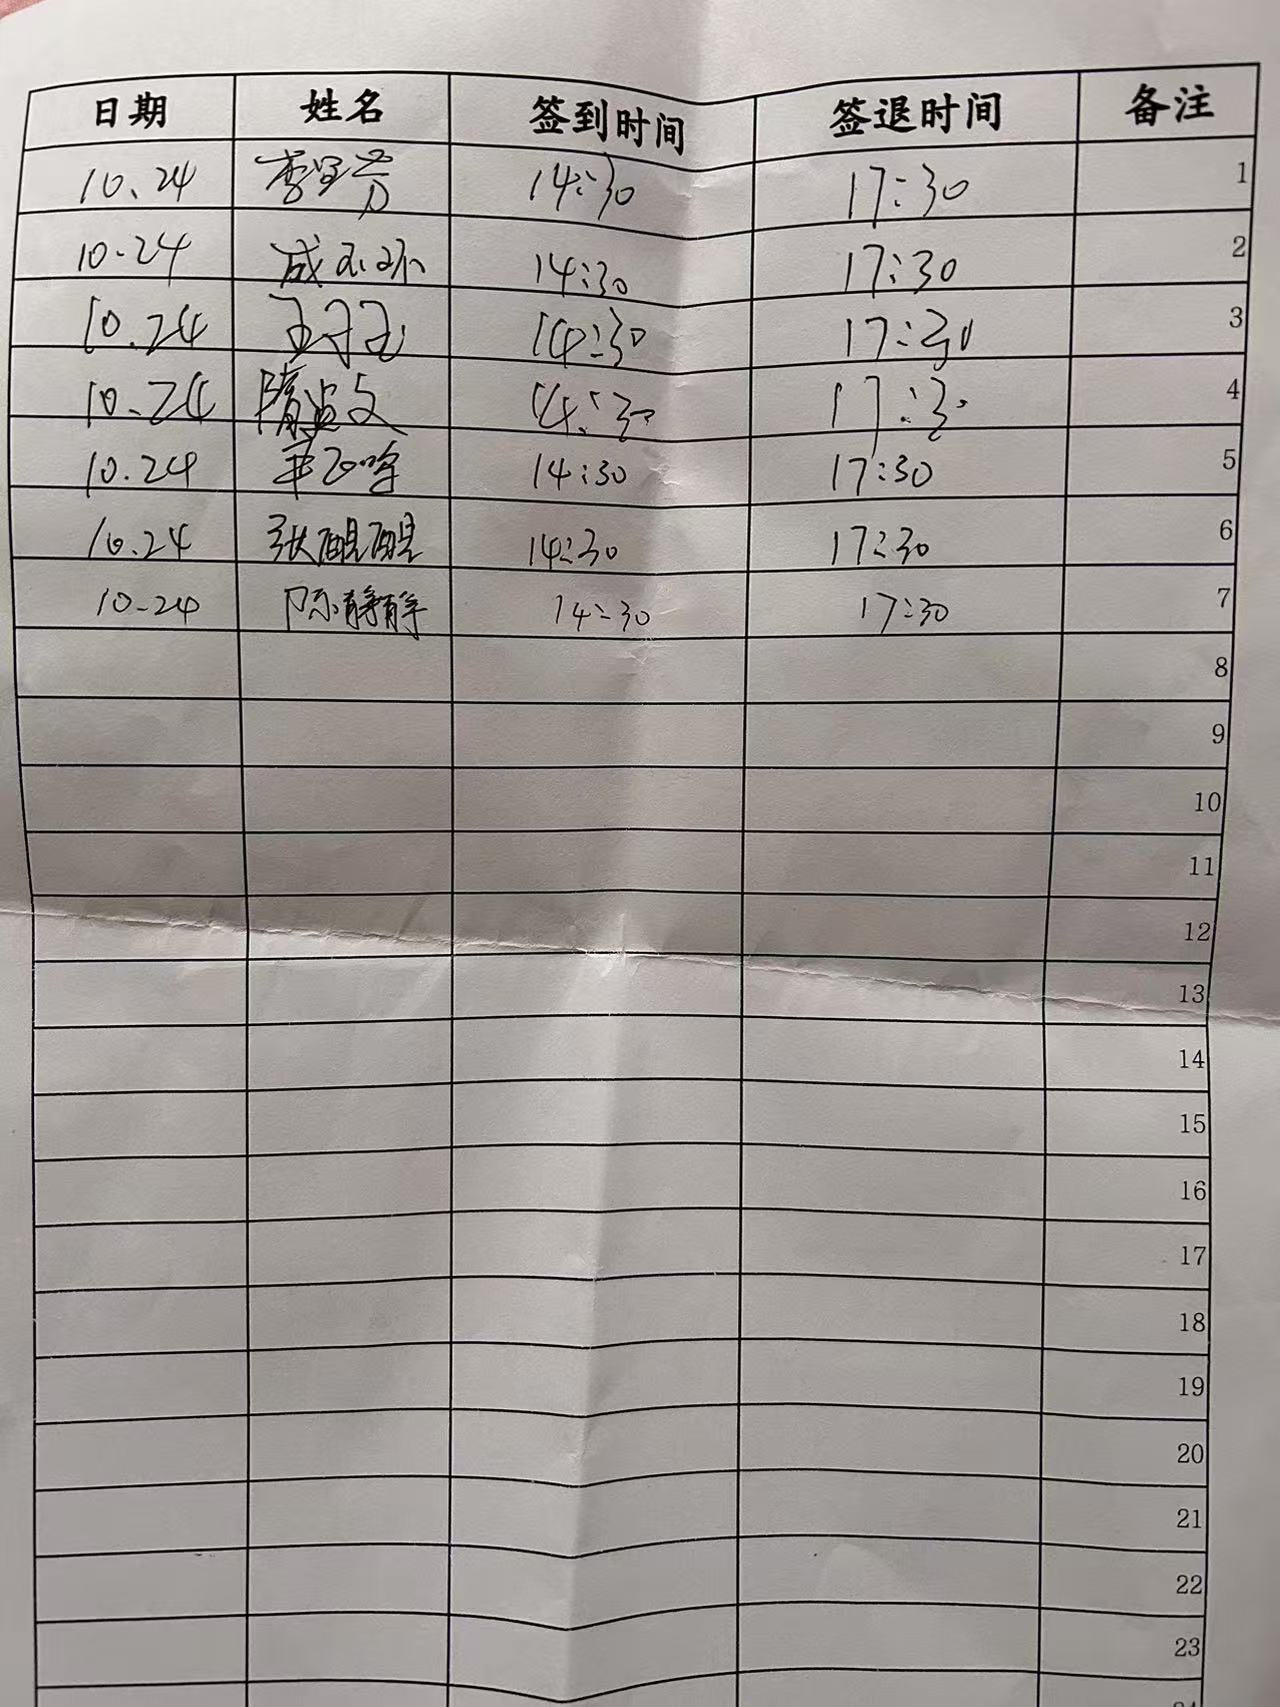 日期 姓名 签到时间 签退时间 备注
10.24 14:30 17:30 1
10.24 14:30 17:30 2
10.24 14:30 17:30 3
10.24 14:30 17:30 4
10.24 14:30 17:30 5
10.24 张醒醒 14:30 17:30 6
10.24 陈静静 14:30 17:30 7
8
9
10
11
12
13
14
15
16
17
18
19
20
21
22
23